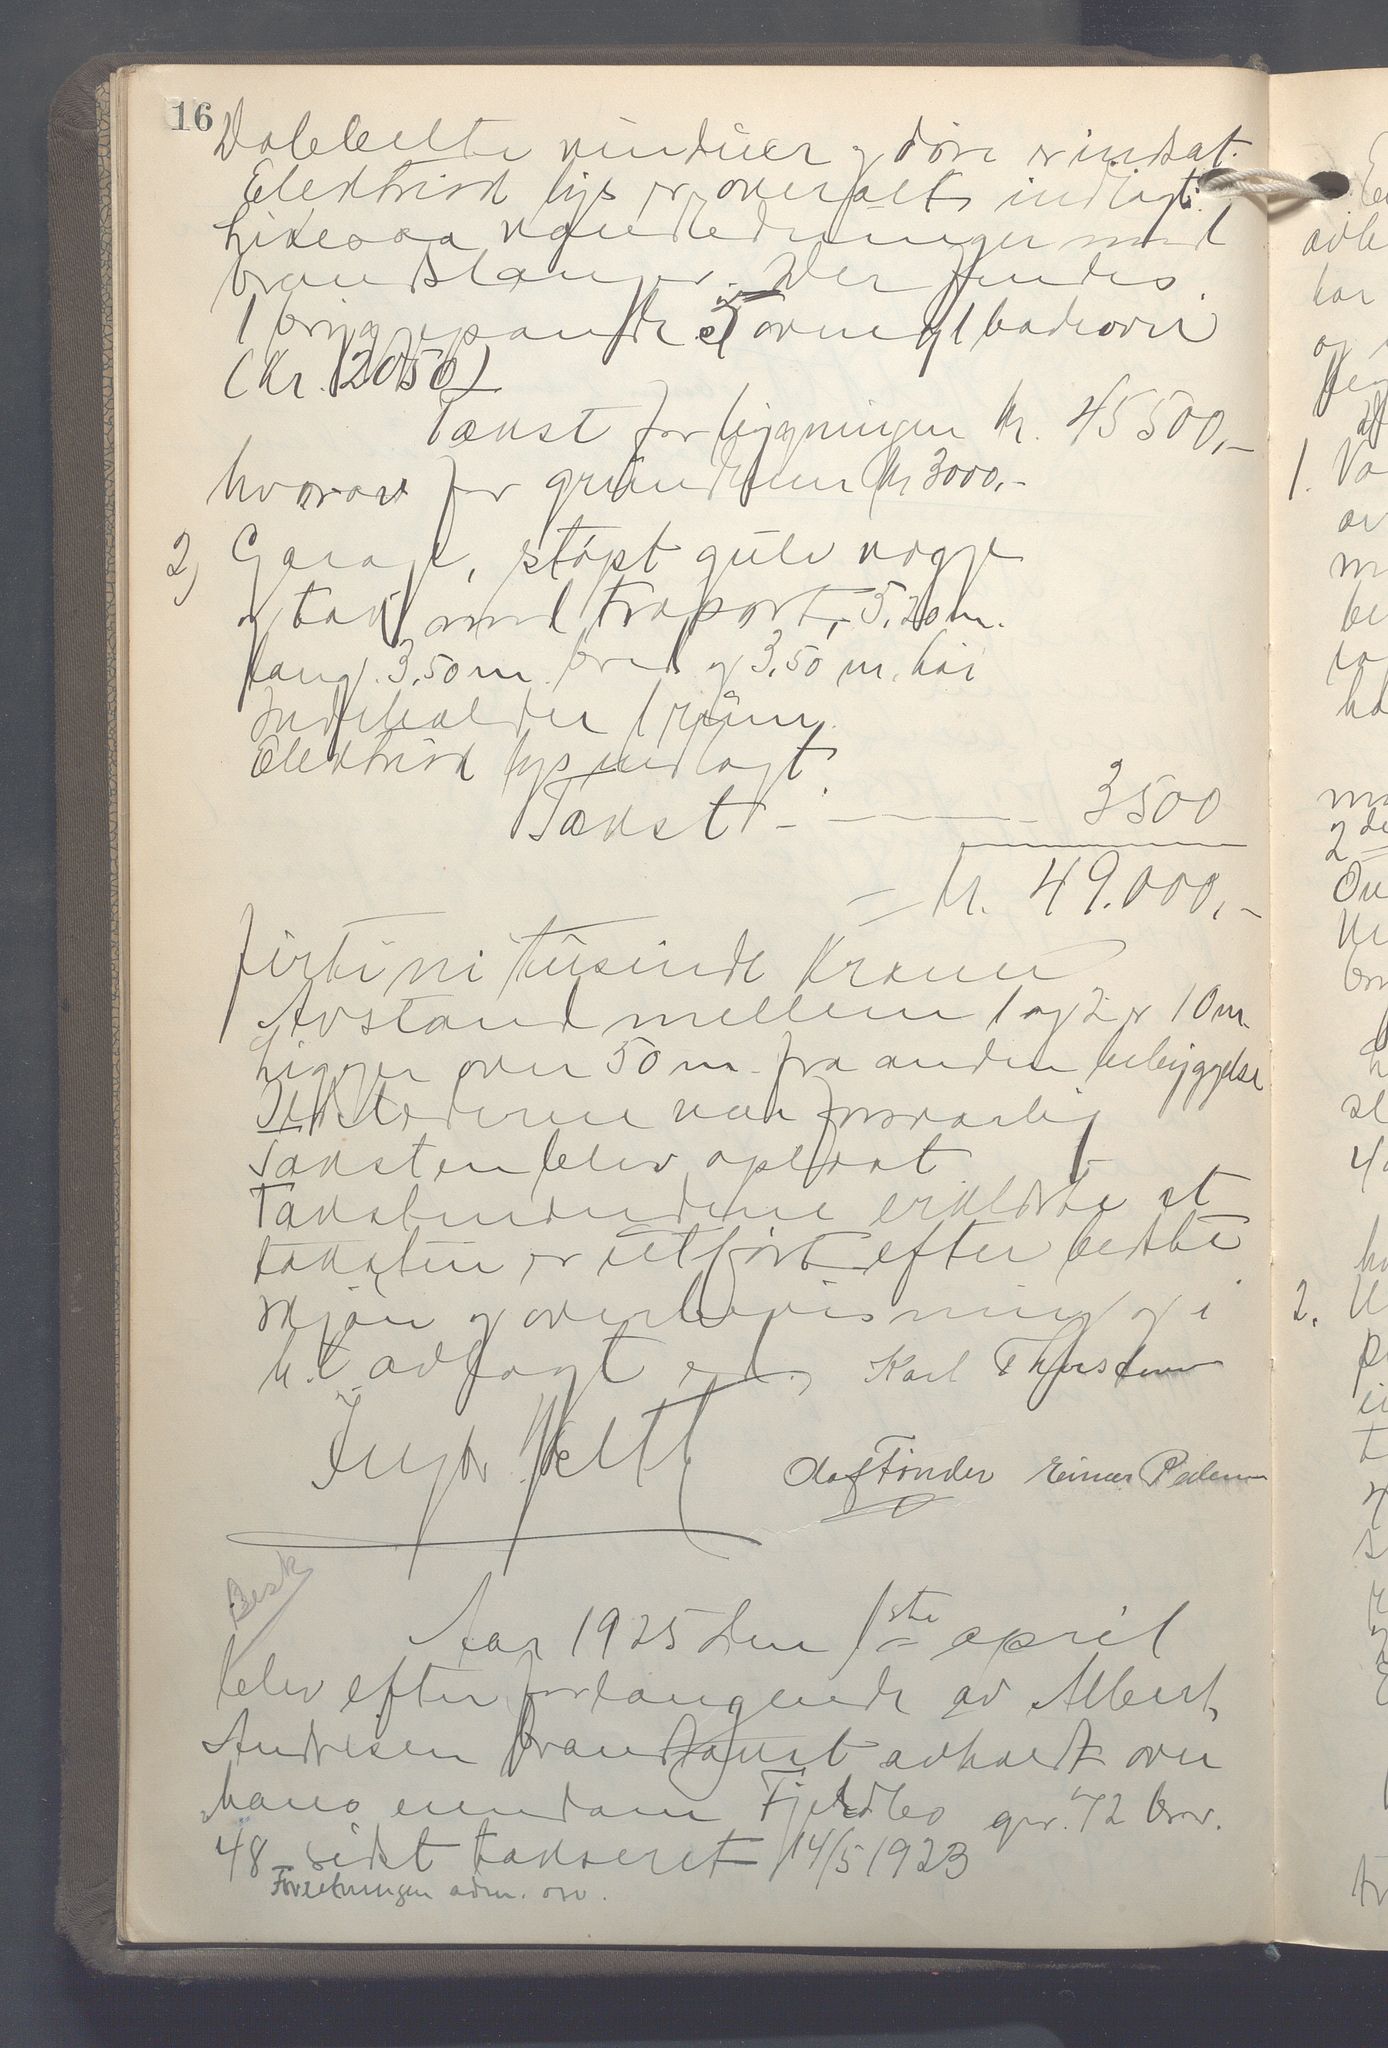 16
Dobbelte vinduer og døre er indsat.
Elektrisk lys er overalt indlagt.
Likesaa vandledninger med
brandslanger. Der findes
1 bryggepande 5 ovne og 1 badeovn
(Kr. 12050)
Takst for bygningen kr. 45500,-
hvorav for grundmur kr 3000,-
2) Garage, støpt gulv vægge
og tak med træport, 5,20 m.
lang 3,50 m. bred og 3,50 m. høi
Indeholder 1 rum.
Elektrisk lys indlagt.
Takst - 3500
= kr. 49.000,-
firti ni tusinde kroner
Avstand mellem 1 og 2 er 10 m.
Ligger over 50 m. fra anden bebyggelse
Ildstederne var forsvarlig
Taksten blev oplæst
Takstmændene erklærte at
taksten er utført efter bedste
skjøn og overbevisning og i
h.t. avlagt ed.
Karl Thorsen
Olaf Tønder Einar Pedersen
Besk
Aar 1925 den 1ste april
blev efter forlangende av Albert
Andresen brandtakst avholdt over
hans eiendom Fjeldbo gnr. 72 brnr.
48 sidst takseret 14/5 1923
Forretningen adm. av